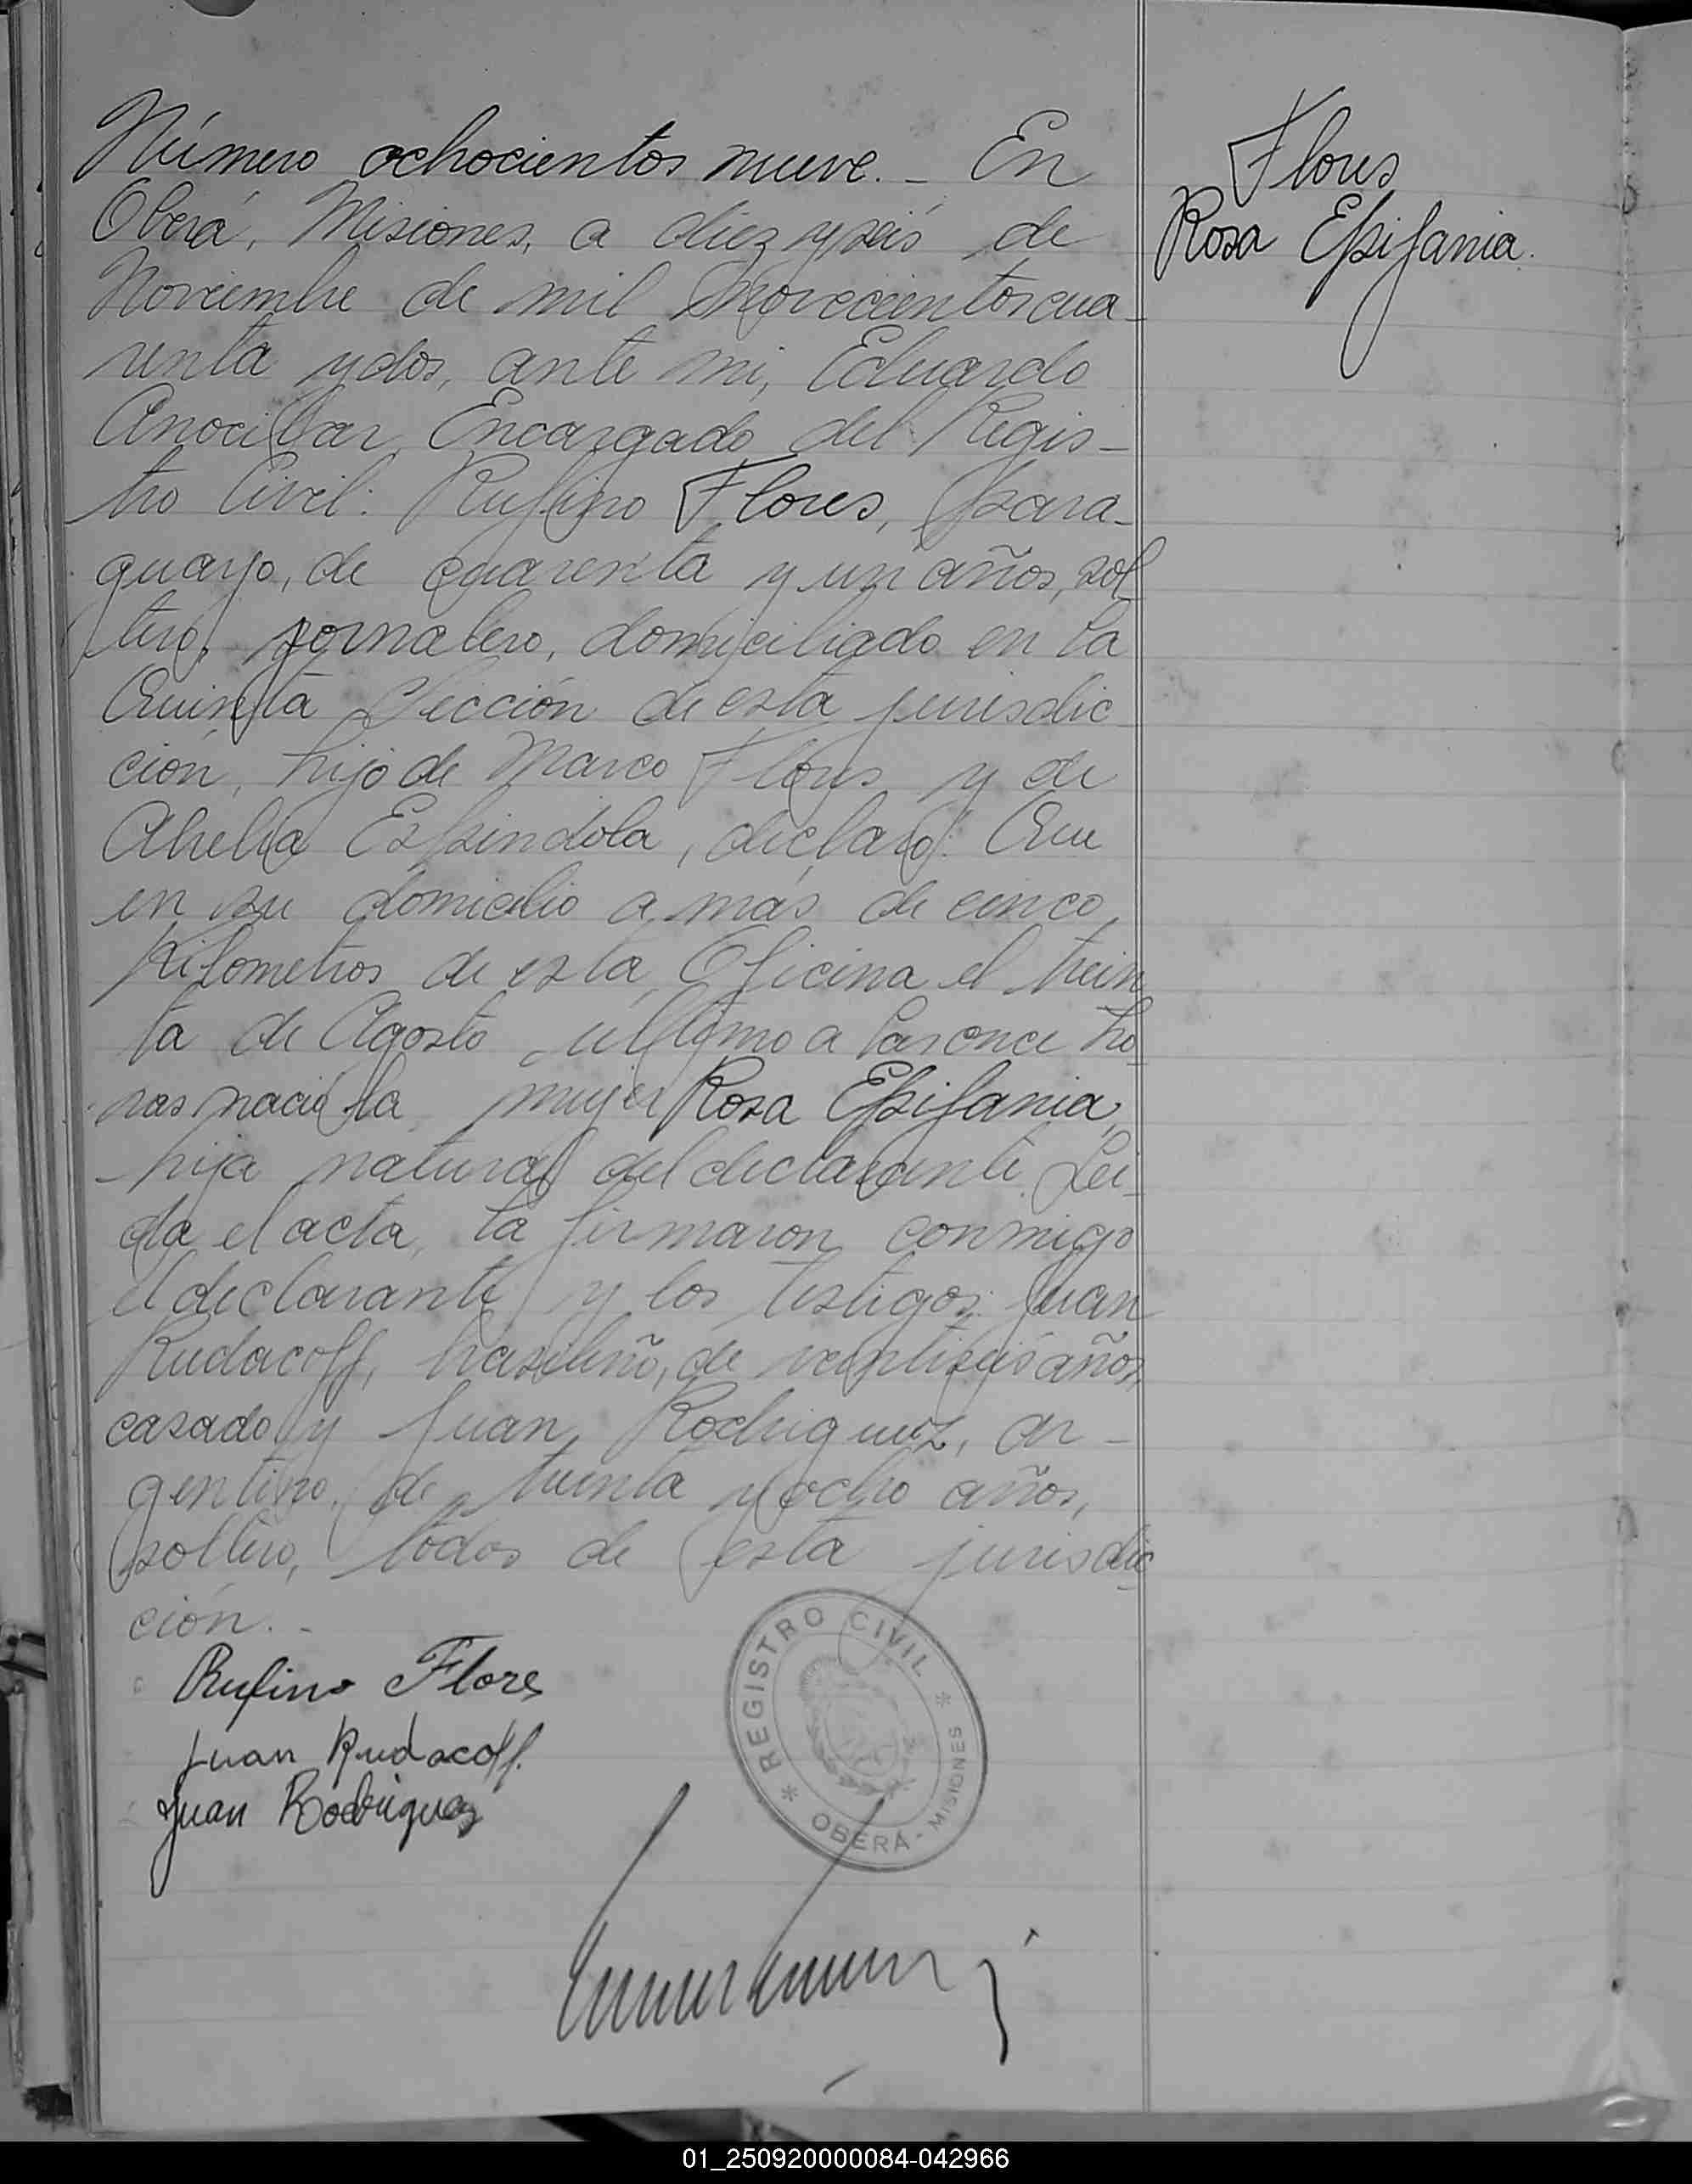 Número ochocientos nueve. _ En
Oberá, Misiones, a diez y seis de
Noviembre de mil novecientos cua_
renta y dos, ante mi, Eduardo
Anocibar, Encargado del Regis_
tro Civil: Rufino Flores, para_
guayo, de cuarenta y un años, sol_
tero, jornalero, domiciliado en la
Quinta Sección de esta jurisdic_
ción, hijo de Marco Flores y de
Espindola, declaró: Que
en su domicilio a más de cinco
Kilometros de esta Oficina el trein
ta de Agosto último a las once ho_
ras nació la mujer Rosa Epifania,
_ hija natural del declarante. Lei_
da el acta, la firmaron conmigo
el declarante y los testigos: Juan
Rudacoff, brasileño, de veintiseis años,
casado y Juan Rodriguez, ar_
gentino, de treinta y ocho años,
soltero, todos de esta jurisdic_
ción. _
Flores
Rosa Epifania.
Rufino Flores
Juan Rudacoff.
Juan Rodriguez
* REGISTRO CIVIL *
OBERÁ - MISIONES
01_250920000084-042966